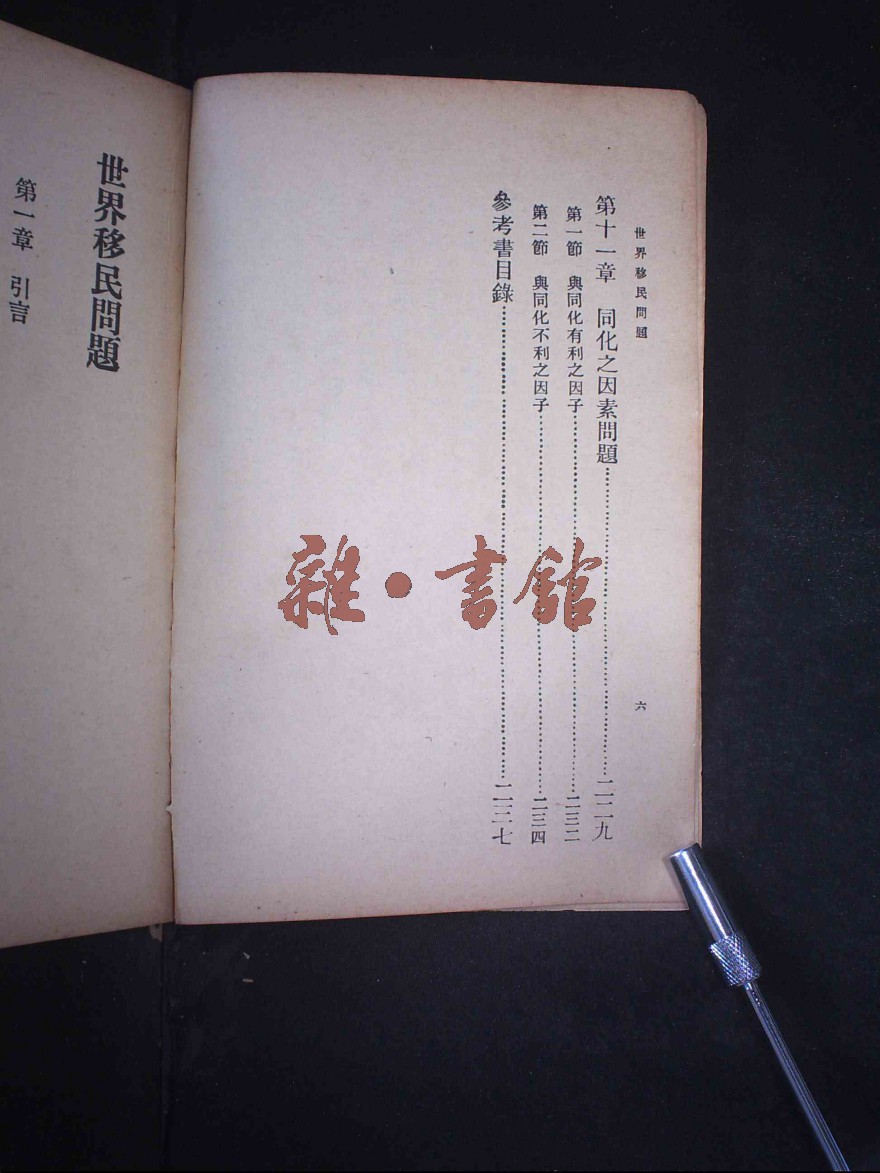 世界移民問題
六
第十一章 同化之因素問題……二二九
第一節 與同化有利之因子……二三二
第二節 與同化不利之因子……二三四
參考書目錄……二三七
世界移民問題
第一章 引言
雜·書館